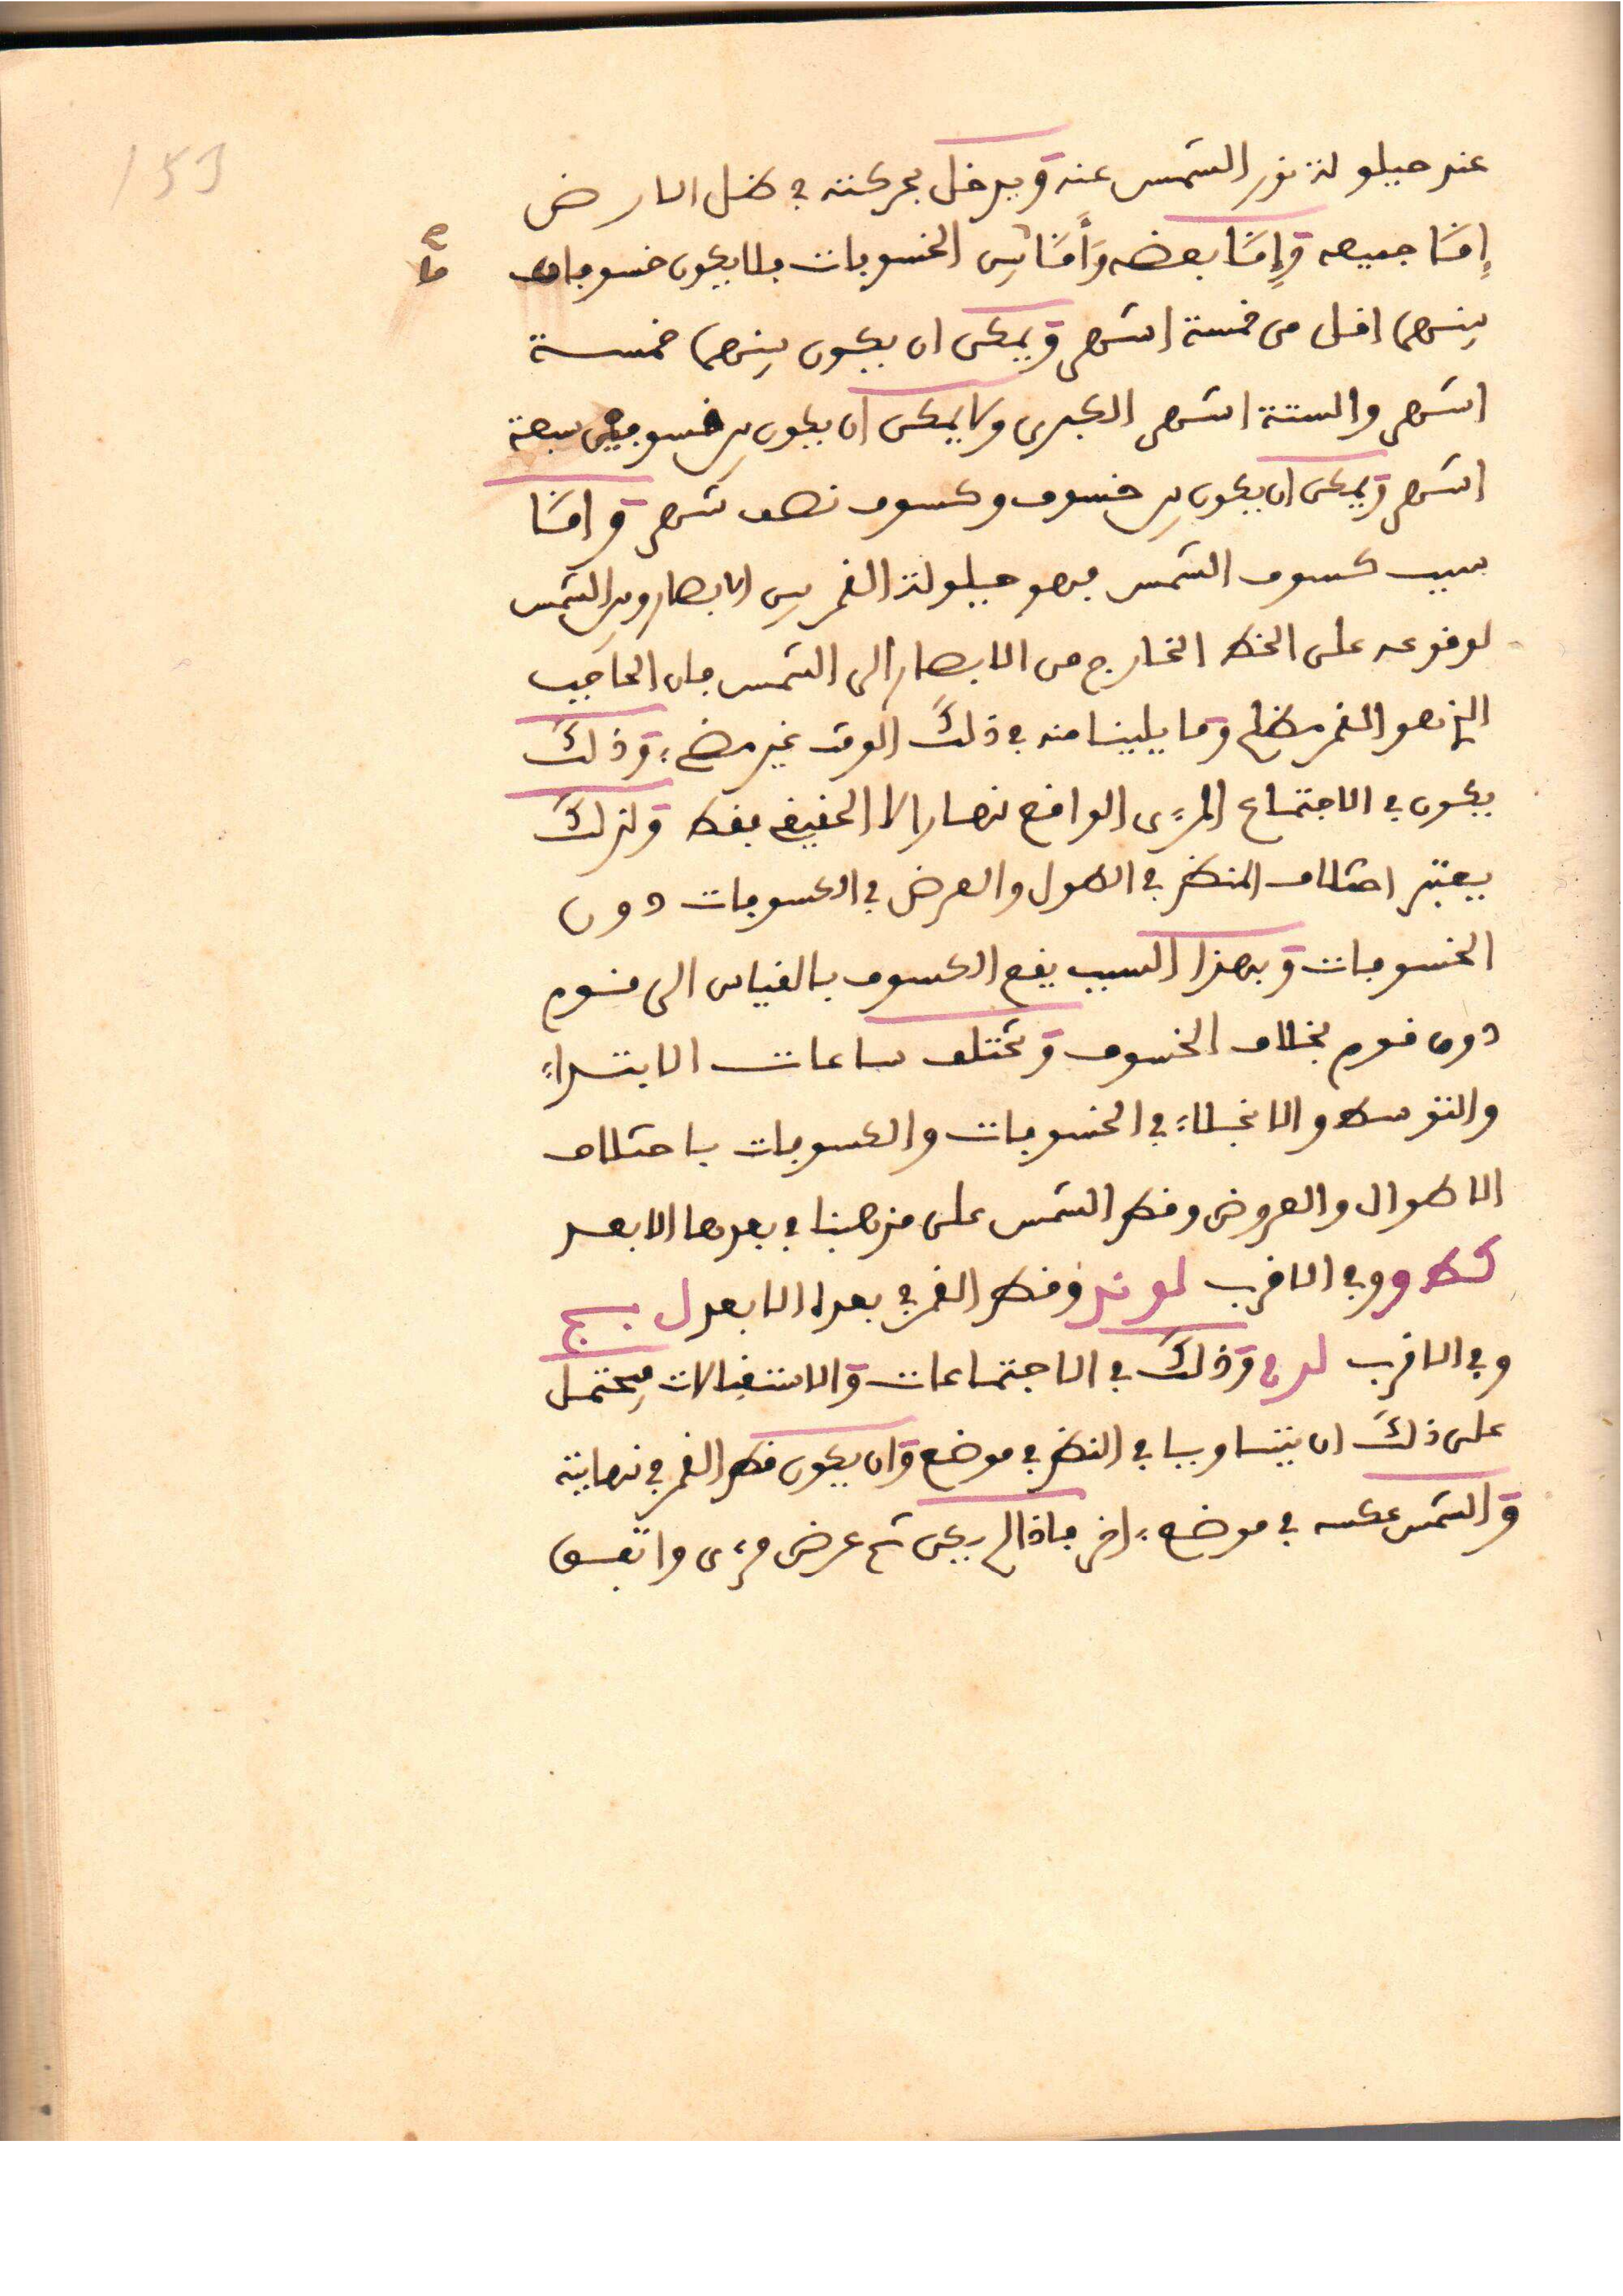 153
عند حيلولة نور الشمس عنه ويدخل بحركته في ظل الارض
إمّا جميعه وإمّا بعضه وأمّا بين الخسوفات فلا يكون خسوفان
بينهما اقل من خمسة اشهر ويمكن ان يكون بينهما خمسة
اشهر والستة اشهر الكبرى ولا يمكن ان يكون بين خسوفين سبعة
اشهر ويمكن ان يكون بين خسوف وكسوف نصف شهر وامّا
سبب كسوف الشمس فهو حيلولة القمر بين الابصار وبين الشمس
لوقوعه على الخط الخارج من الابصار الى الشمس فان الحاجب
الذي هو القمر مظلم وما يلينا منه في ذلك الوقت غير مضيء وذلك
يكون في الاجتماع المرءى الواقع نهارا لا الحقيقي فقط ولذلك
يعتبر اختلاف المنظر في الطول والعرض في الكسوفات دون
الخسوفات وبهذا السبب يقع الكسوف بالقياس الى قوم
دون قوم بخلاف الخسوف وتختلف ساعات الابتداء
والتوسط والانجلاء في الخسوفات والكسوفات باختلاف
الاطوال والعروض وقطر الشمس على مذهبنا في بعدها الابعد
كط و وفي الاقرب لو ند وقطر القمر في بعده الابعد ل
وفي الاقرب وذلك في الاجتماعات والاستقبالات فيحتمل
على ذلك ان يتساويا في النظر في موضع وان يكون قطر القمر في نهايته
والشمس عكسه في موضع ءاخر فاذا لم يكن ثم عرض مرءى واتفق